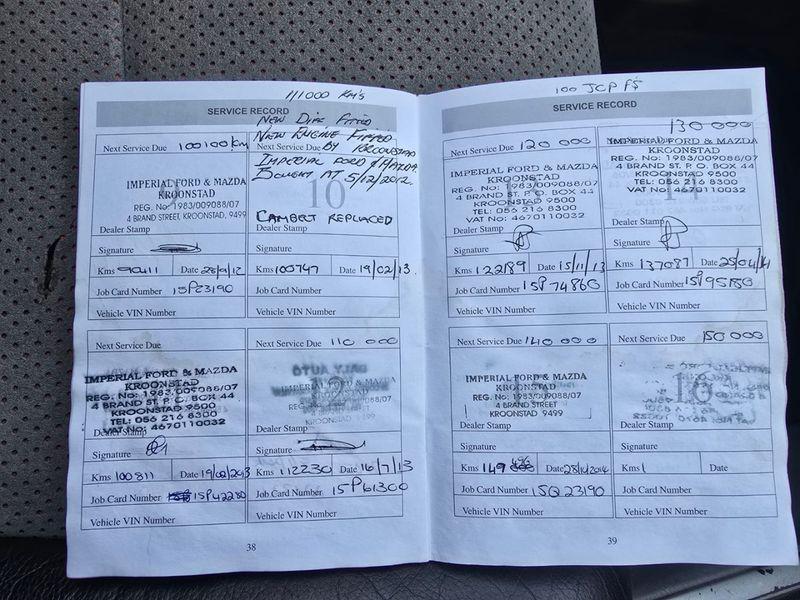 111000 Km's
SERVICE RECORD
New Disc Fitted
New Engine Fitted
By Kroonstad
Imperial Ford & Mazda.
Bought AT 5/12/2012.
Next Service Due 100100km
IMPERIAL FORD & MAZDA
KROONSTAD
REG. No: 1983/009088/07
4 BRAND STREET, KROONSTAD, 9499
Dealer Stamp
Signature
Kms 90411 Date
Job Card Number 15P23190
Vehicle VIN Number
Next Service Due
10
CAMBERT REPLACED
Dealer Stamp
Signature
Kms 100747 Date 19/02/13
Job Card Number
Vehicle VIN Number
Next Service Due
IMPERIAL FORD & MAZDA
KROONSTAD
REG. No: 1983/009088/07
4 BRAND ST. P. O. BOX 44
KROONSTAD 9500
TEL: 056 216 8300
VAT No: 4670110032
Dealer Stamp
Signature
Kms 100811 Date 19/02/2013
Job Card Number 15P42280
Vehicle VIN Number
Next Service Due 110 000
12
Dealer Stamp
Signature
Kms 112230 Date 16/7/13
Job Card Number 15P61300
Vehicle VIN Number
38
100 JCP
SERVICE RECORD
Next Service Due 120 000
IMPERIAL FORD & MAZDA
KROONSTAD
REG. No: 1983/009088/07
4 BRAND ST. P. O. BOX 44
KROONSTAD 9500
TEL: 056 216 8300
VAT No: 4670110032
Dealer Stamp
Signature
Kms 122189 Date 15/11/13
Job Card Number 15P74860
Vehicle VIN Number
130 000
Next Service Due
IMPERIAL FORD & MAZDA
KROONSTAD
REG. No: 1983/009088/07
4 BRAND ST. P. O. BOX 44
KROONSTAD 9500
TEL: 056 216 8300
VAT No: 4670110032
14
Dealer Stamp
Signature
Kms 137087 Date 25/04/14
Job Card Number 15P95150
Vehicle VIN Number
Next Service Due 140 000
IMPERIAL FORD & MAZDA
KROONSTAD
REG. No: 1983/009088/07
4 BRAND STREET
KROONSTAD 9499
Dealer Stamp
Signature
Kms 149 496 Date 28/10/2014
Job Card Number 15Q23190
Vehicle VIN Number
Next Service Due 150 000
16
Dealer Stamp
Signature
Kms Date
Job Card Number
Vehicle VIN Number
39